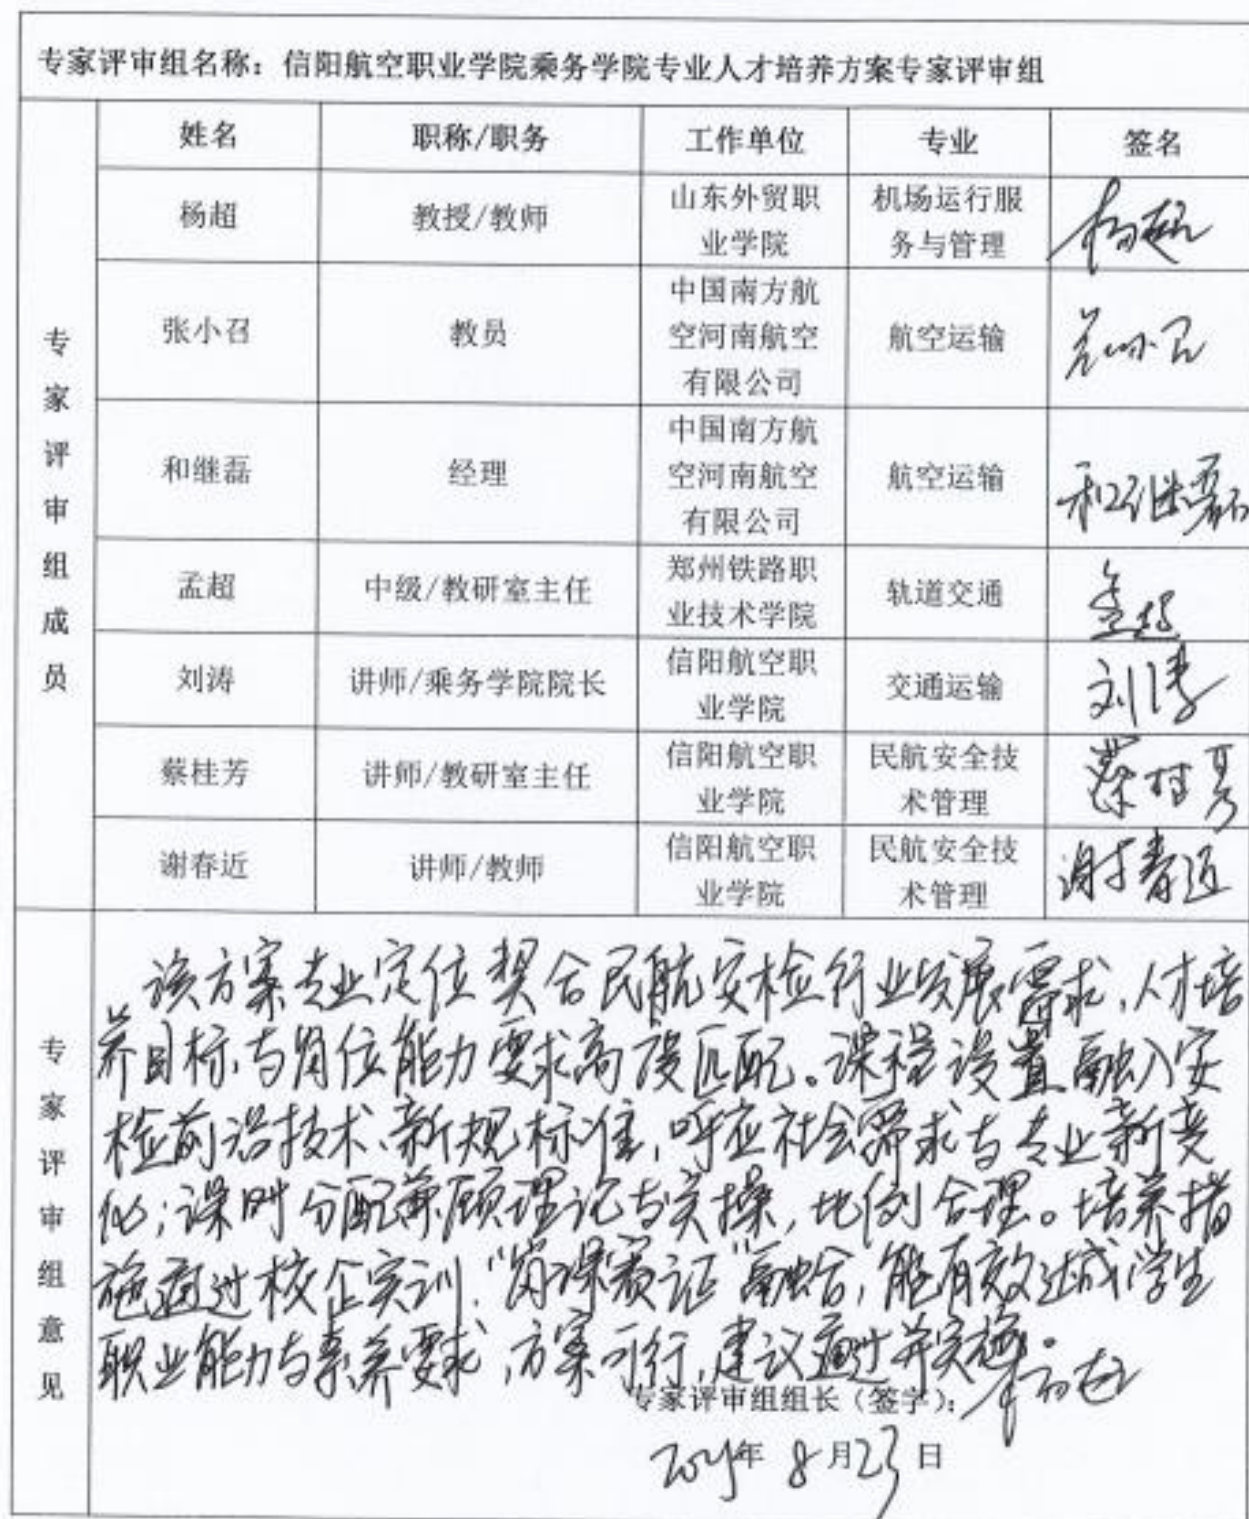 专家评审组名称：信阳航空职业学院乘务学院专业人才培养方案专家评审组
专家评审组成员
姓名 职称/职务 工作单位 专业 签名
杨超 教授/教师 山东外贸职业学院 机场运行服务与管理 杨超
张小召 教员 中国南方航空河南航空有限公司 航空运输
和继磊 经理 中国南方航空河南航空有限公司 航空运输 和继磊
孟超 中级/教研室主任 郑州铁路职业技术学院 轨道交通 孟超
刘涛 讲师/乘务学院院长 信阳航空职业学院 交通运输 刘涛
蔡桂芳 讲师/教研室主任 信阳航空职业学院 民航安全技术管理 蔡桂芳
谢春近 讲师/教师 信阳航空职业学院 民航安全技术管理 谢春近
专家评审组意见
该方案专业定位契合民航安检行业发展需求，人才培
养目标与岗位能力要求高度匹配。课程设置融入安
检前沿技术、新规标准，呼应社会需求与专业新变
化；课时分配兼顾理论与实操，比例合理。培养措
施通过校企实训、“岗课赛证”融合，能有效达成学生
职业能力与素养要求，方案可行，建议通过并实施。
专家评审组组长（签字）：杨超
2025年 8月23日